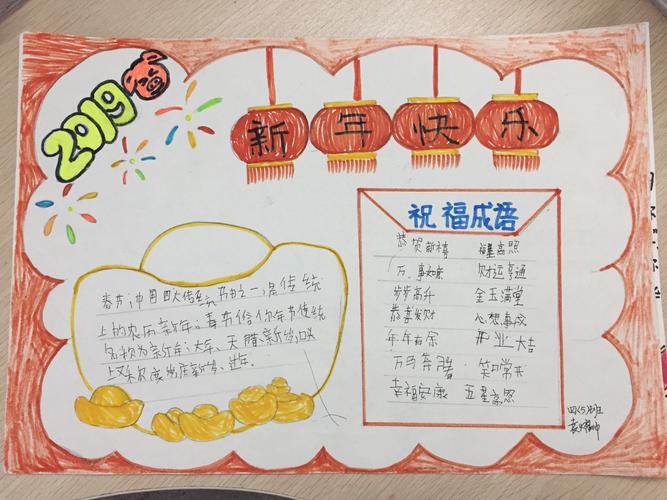 2019
新年快乐
祝福成语
恭贺新禧 福星高照
万事如意 财运亨通
步步高升 金玉满堂
恭喜发财 心想事成
年年有余 开业大吉
万马奔腾 笑口常开
幸福安康 五星高照
春节,中国四大传统节日之一,是传统
上的农历新年。春节俗你年节传统
名称为新年、大年、天腊、新岁,口头
上又称度岁、庆新岁、过年。
四(5)班